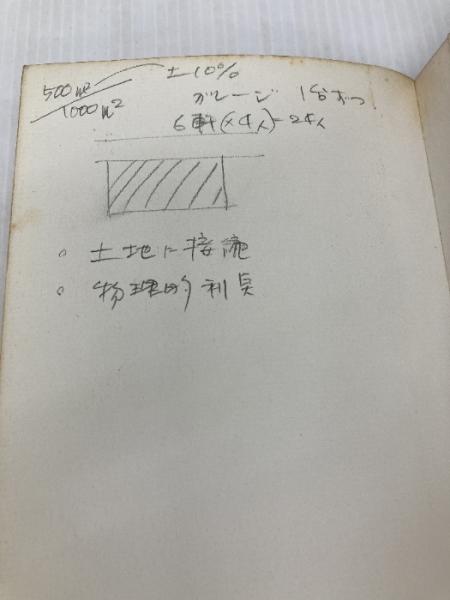 500m² ±10%
1000m² ガレージ 1台ずつ
6軒(×4人)=24人
。土地に接続
。物理的利点